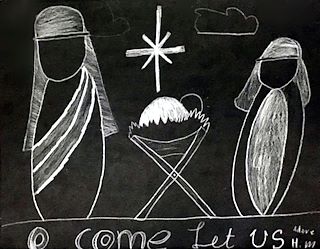 O come Let US Adore
Him